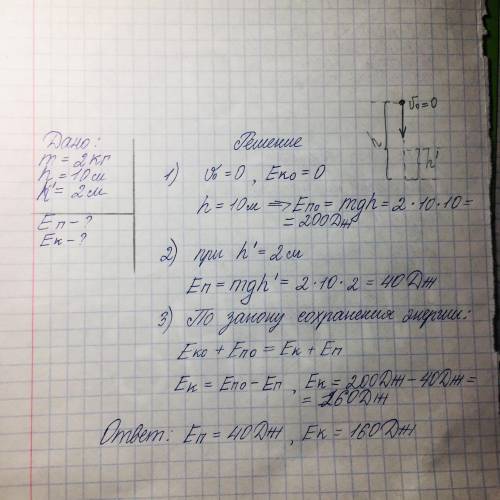 Дано:
m = 2 кг
h = 10 м
h' = 2 м
Eп - ?
Eк - ?
Решение
1) v₀ = 0, Eк₀ = 0
h = 10 м ⇒ Eп₀ = mgh = 2·10·10 =
= 200 Дж
2) при h' = 2 м
Eп = mgh' = 2·10·2 = 40 Дж
3) По закону сохранения энергии:
Eк₀ + Eп₀ = Eк + Eп
Eк = Eп₀ - Eп, Eк = 200 Дж - 40 Дж =
= 160 Дж
Ответ: Eп = 40 Дж, Eк = 160 Дж
v₀ = 0
h
h'